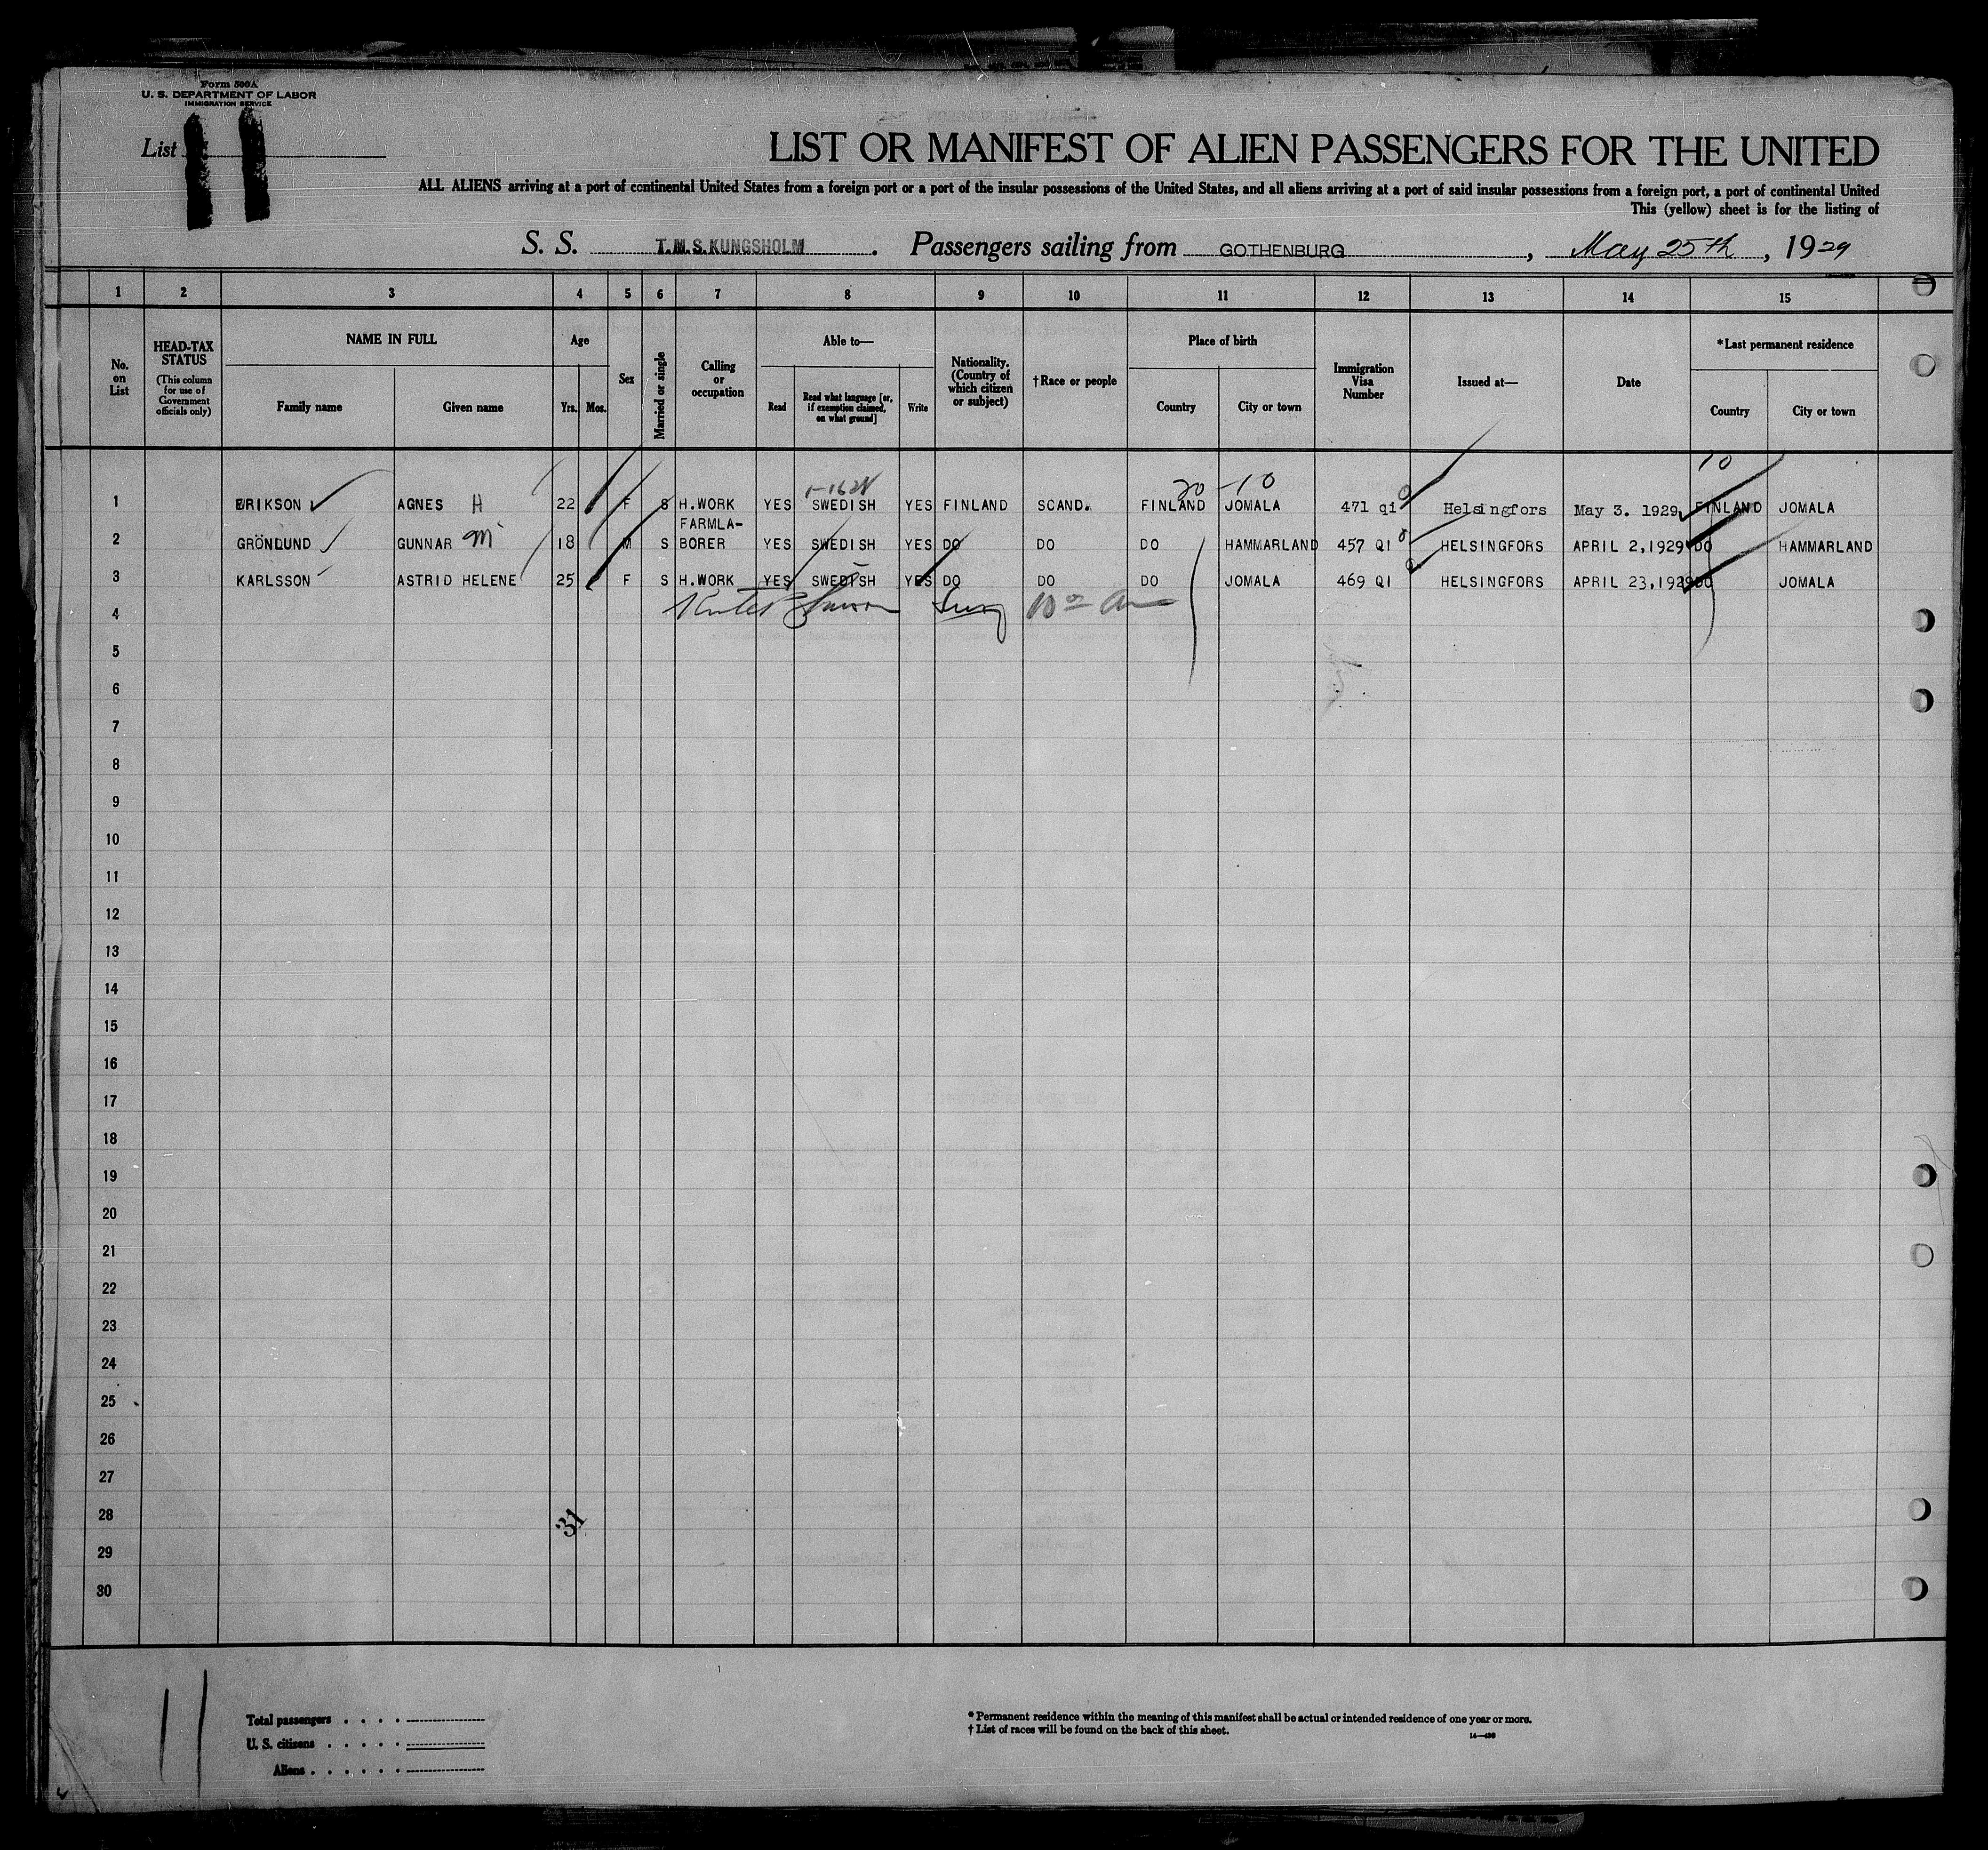 Form 500A
U. S. DEPARTMENT OF LABOR
IMMIGRATION SERVICE
List 11
LIST OR MANIFEST OF ALIEN PASSENGERS FOR THE UNITED
ALL ALIENS arriving at a port of continental United States from a foreign port or a port of the insular possessions of the United States, and all aliens arriving at a port of said insular possessions from a foreign port, a port of continental United
This (yellow) sheet is for the listing of
S. S. T.M.S. KUNGSHOLM. Passengers sailing from GOTHENBURG, May 25th, 1929
1 2 3 4 5 6 7 8 9 10 11 12 13 14 15
No. on List
HEAD-TAX STATUS
(This column for use of Government officials only)
NAME IN FULL
Family name
Given name
Age
Yrs. Mos.
Sex
Married or single
Calling or occupation
Able to—
Read
Read what language [or, if exemption claimed, on what ground]
Write
Nationality. (Country of which citizen or subject)
† Race or people
Place of birth
Country
City or town
Immigration Visa Number
Issued at—
Date
*Last permanent residence
Country
City or town
10
20-10
1 ERIKSON AGNES H 22 F S H.WORK YES SWEDISH YES FINLAND SCAND. FINLAND JOMALA 471 qi Helsingfors May 3. 1929 FINLAND JOMALA
2 GRÖNLUND GUNNAR M 18 M S FARMLA-BORER YES SWEDISH YES DO DO DO HAMMARLAND 457 QI HELSINGFORS APRIL 2,1929 DO HAMMARLAND
3 KARLSSON ASTRID HELENE 25 F S H.WORK YES SWEDISH YES DO DO DO JOMALA 469 QI HELSINGFORS APRIL 23,1929 DO JOMALA
4
5
6
7
8
9
10
11
12
13
14
15
16
17
18
19
20
21
22
23
24
25
26
27
28
31
29
30
11
Total passengers . . . .
U. S. citizens . . . . .
Aliens . . . . . .
* Permanent residence within the meaning of this manifest shall be actual or intended residence of one year or more.
† List of races will be found on the back of this sheet.